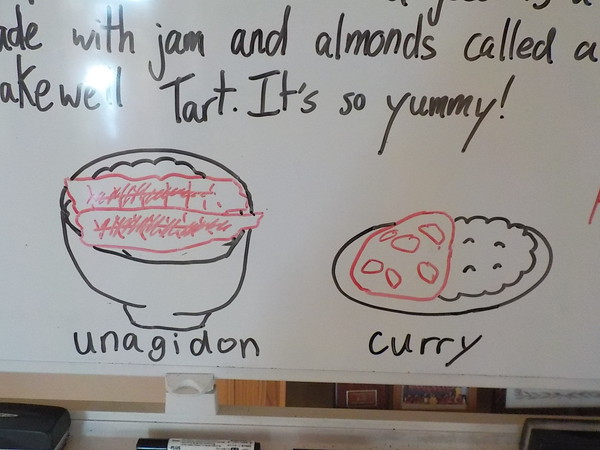 ade with jam and almonds called a
akewell Tart. It's so yummy!
unagidon curry
PLUS